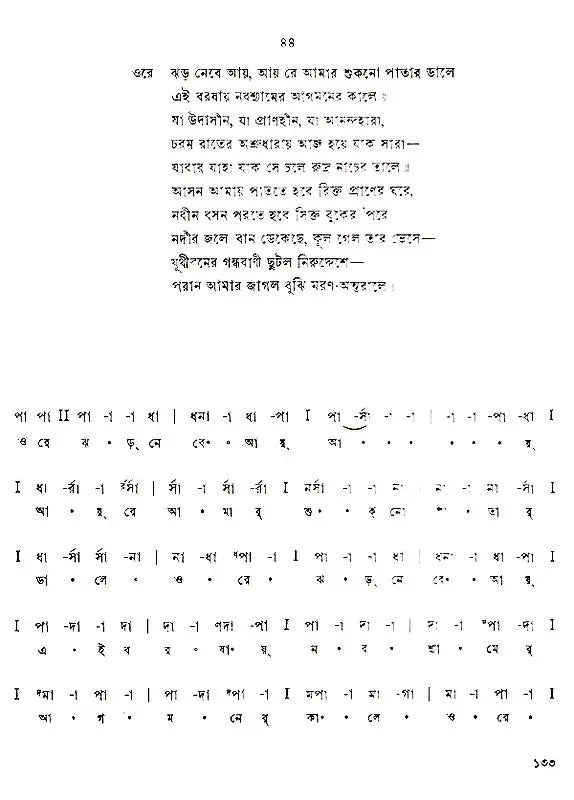 ৪৪
ওরে ঝড় নেবে আয়, আয় রে আমার শুকনো পাতার ডালে
এই বরষায় নবশ্যামের আগমনের কালে॥
যা উদাসীন, যা প্রাণহীন, যা আনন্দহারা,
চরম রাতের অশ্রুধারায় আজ হয়ে যাক সারা—
যাবার যাহা যাক সে চলে রুদ্র নাচের তালে॥
আসন আমায় পাততে হবে রিক্ত প্রাণের ঘরে,
নবীন বসন পরতে হবে সিক্ত বুকের 'পরে
নদীর জলে বান ডেকেছে, কূল গেল তার ভেসে—
যূথীবনের গন্ধবাণী ছুটল নিরুদ্দেশে—
পরান আমার জাগল বুঝি মরণ-অন্তরালে।
পা পা II পা -া -া ধা | ধনা -া ধা -পা I পা -র্সা -া -া | -া -া -পা -ধা I
ও রে ঝ • ড়্ নে বে • আ য়্ আ • • • • • • য়্
I ধা -র্রা -া র্রর্সা | র্সা -া র্সা -র্রা I নর্সা -া -া না | না -া না -র্সা I
আ • য়্ রে আ • মা র্ শু • ক্ নো পা • তা র্
I ধা -র্সা র্সা -না | না -ধা ধপা -া I পা -া -া ধা | ধনা -া ধা -পা I
ডা • লে • ও • রে • ঝ • ড়্ নে বে • আ য়্
I পা -দা -া দা | দা -া ণদা -পা I পা -া দা -া | দা -া পপা -দা I
এ • ই ব র • ষা য়্ ন • ব • শ্যা • মে র্
I মা -া পা -া | পা -দা পা -া I মপা -া মা -গা | মা -া পা -া I
আ • গ • ম • নে র্ কা • লে • ও • রে •
১৩৩